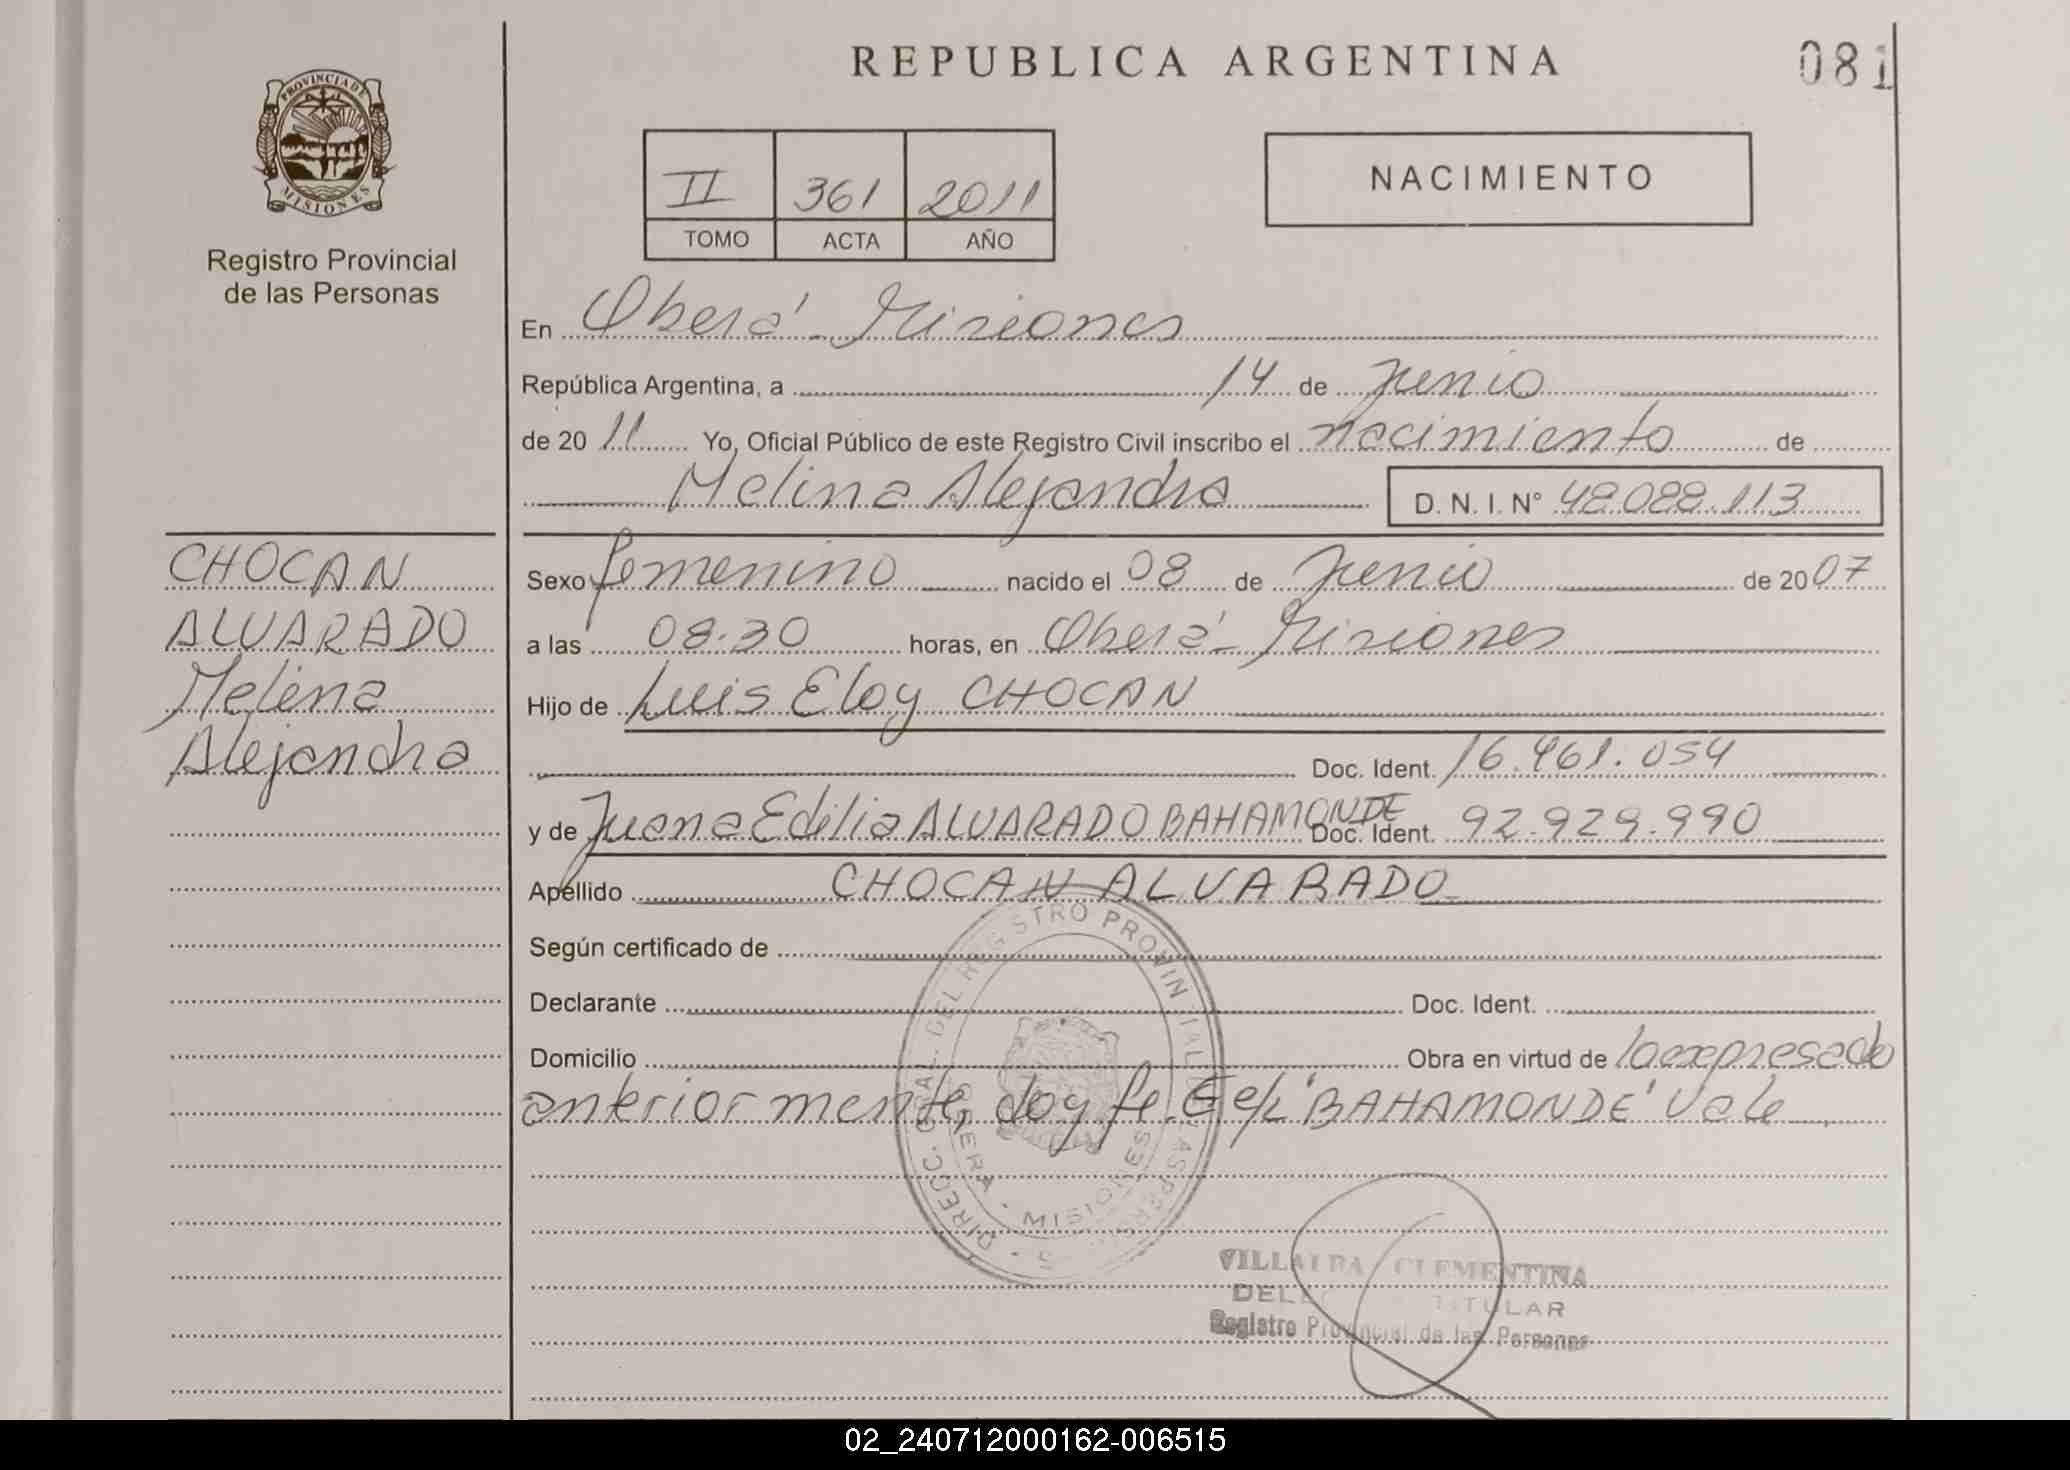 REPUBLICA ARGENTINA
081
PROVINCIA DE
MISIONES
Registro Provincial
de las Personas
II 361 2011
TOMO ACTA AÑO
NACIMIENTO
En Oberá - Misiones
República Argentina, a 14 de Junio
de 20 11 Yo, Oficial Público de este Registro Civil inscribo el nacimiento de
Melina Alejandra D. N. I. N° 48.088.113
CHOCAN
ALVARADO
Melina
Alejandra
Sexo femenino nacido el 08 de Junio de 20 07
a las 08.30 horas, en Oberá - Misiones
Hijo de Luis Eloy CHOCAN
Doc. Ident. 16.461.054
y de Juana Edilia ALVARADO BAHAMONDE Doc. Ident. 92.929.990
Apellido CHOCAN ALVARADO
Según certificado de
Declarante Doc. Ident.
Domicilio Obra en virtud de lo expresado
anteriormente, doy fe. E e/L "BAHAMONDE" Vale
DIRECC. GRAL. DEL REGISTRO PROVINCIAL DE LAS PERSONAS
OBERA - MISIONES
VILLALBA CLEMENTINA
TITULAR
Registro Provincial de las Personas
02_240712000162-006515